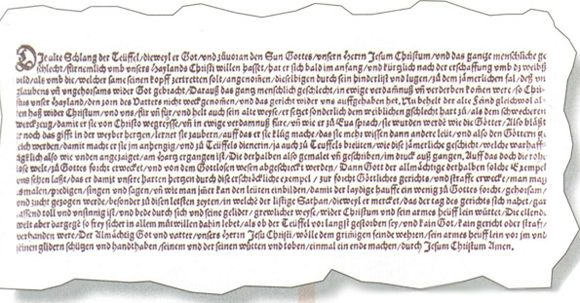 Die alte Schlang der Teüffel/dieweyl er Got/und zůuoran den Sun Gottes/unsern Herrn Jesum Christum/und das gantze menschliche ge
schlecht/fürnemlich umb unsers Haylands Christi willen hasset/hat er sich bald im anfang/und kürtzlich nach der erschaffung umb dz weibß
bild/als umb die/welcher same seinen kopff zertretten solt/angenomen/dieselbigen durch sein hinderlist und lugen/zů dem jämerlichen fal/deß un
glaubens uñ ungehorsams wider Got gebracht/Darauß das gantz menschlich geschlecht/in ewige verdamnuß uñ verderben komen were/so Chri
stus unser Hayland/den zorn des Vatters nicht weckgenomen/und das gericht wider uns auffgehaben het/Nu behelt der alte Feind gleichwol al
ten haß wider Christum/und uns/für uñ für/und helt auch sein alte weyse/er setzet sonderlich dem weiblichen gschlecht hart zů/als dem schwechern
werckzeug/damit er sie von Christo wegreysse/uñ in ewige verdamnuß füre/uñ wie er zů Eva sprach/sie wurden werde wie die Götter. Also bläßt
noch das gifft in der weyber hertzen/lernet sie zaubern/auff das er sie klůg mache/das sie mehr wissen dann andere leüt/und also den Göttern ge
eich werden/damit macht er sie im anhengig/und zů Teüffels dienerin/ja auch zů Teüffels breüten/wie dise jämerliche geschicht/welche warhaff
tigklich also wie unden angezaiget/am Hartz ergangen ist/Die derhalben also gemalet uñ geschriben/im druck auß gangen/Auff das doch die rohe
lose welt/zů Gottes forcht erweckt/und von dem Gottlosen wesen abgeschreckt werden. Dann Got der allmächtige derhalben solche Exempel
uns sehen laßt/das er damit unsere harten hertzen durch dise erschreckliche exempel/zur forcht Götliches gerichts/und straffe erweck/man mag
smalen/predigen/singen und sagen/uñ wie man jmer kan den leüten einbilden/damit der laydige hauffe ein wenig zů Gottes forcht/gehorsam/
und zucht gezogen werde/besonder zů disen letsten zeyten/in welche der listige Sathan/dieweyl er mercket/das der tag des gerichts sich nahet/gar
rassend toll und unsinnig ist/und bede durch sich und seine gelider/grewlicher weyse/wider Christum und sein armes heüff lein wüttet/Die ellende
welt aber dargegē so frey sicher in allem můtwillen dahin lebet/als ob der Teüffel vor langst gestorben sey/und kain Got/kain gericht oder straff/
verhanden were/Der Almåchtig Got und vatter/unsers Herrn Jesu Christi/wölle dem grimigen feinde wehren/sein armes heüff lein vor jm und
seinen glidern schützen und handthaben/seinem und der seinen wütten und toben/einmal ein ende machen/durch Jesum Christum Amen.